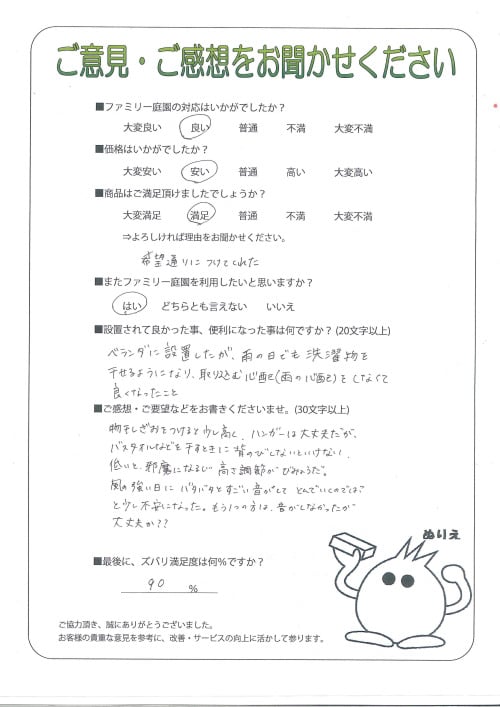 ご意見・ご感想をお聞かせください
■ファミリー庭園の対応はいかがでしたか？
大変良い 良い 普通 不満 大変不満
■価格はいかがでしたか？
大変安い 安い 普通 高い 大変高い
■商品はご満足頂けましたでしょうか？
大変満足 満足 普通 不満 大変不満
⇒よろしければ理由をお聞かせください。
希望通りにつけてくれた
■またファミリー庭園を利用したいと思いますか？
はい どちらとも言えない いいえ
■設置されて良かった事、便利になった事は何ですか？(20文字以上)
ベランダに設置したが、雨の日でも洗濯物を
干せるようになり、取り込む心配(雨の心配)をしなくて
良くなったこと
■ご感想・ご要望などをお書きくださいませ。(30文字以上)
物干しざおをつけると少し高く、ハンガーは大丈夫だが、
バスタオルなどを干すときに背のびしないといけない。
低いと、邪魔になるし高さ調節がびみょうだ。
風の強い日にバタバタとすごい音がして とんでいくのでは
と少し不安になった。もう1つの方は、音がしなかったが
大丈夫か??
■最後に、ズバリ満足度は何％ですか？
90 %
ぬりえ
ご協力頂き、誠にありがとうございました。
お客様の貴重な意見を参考に、改善・サービスの向上に活かして参ります。